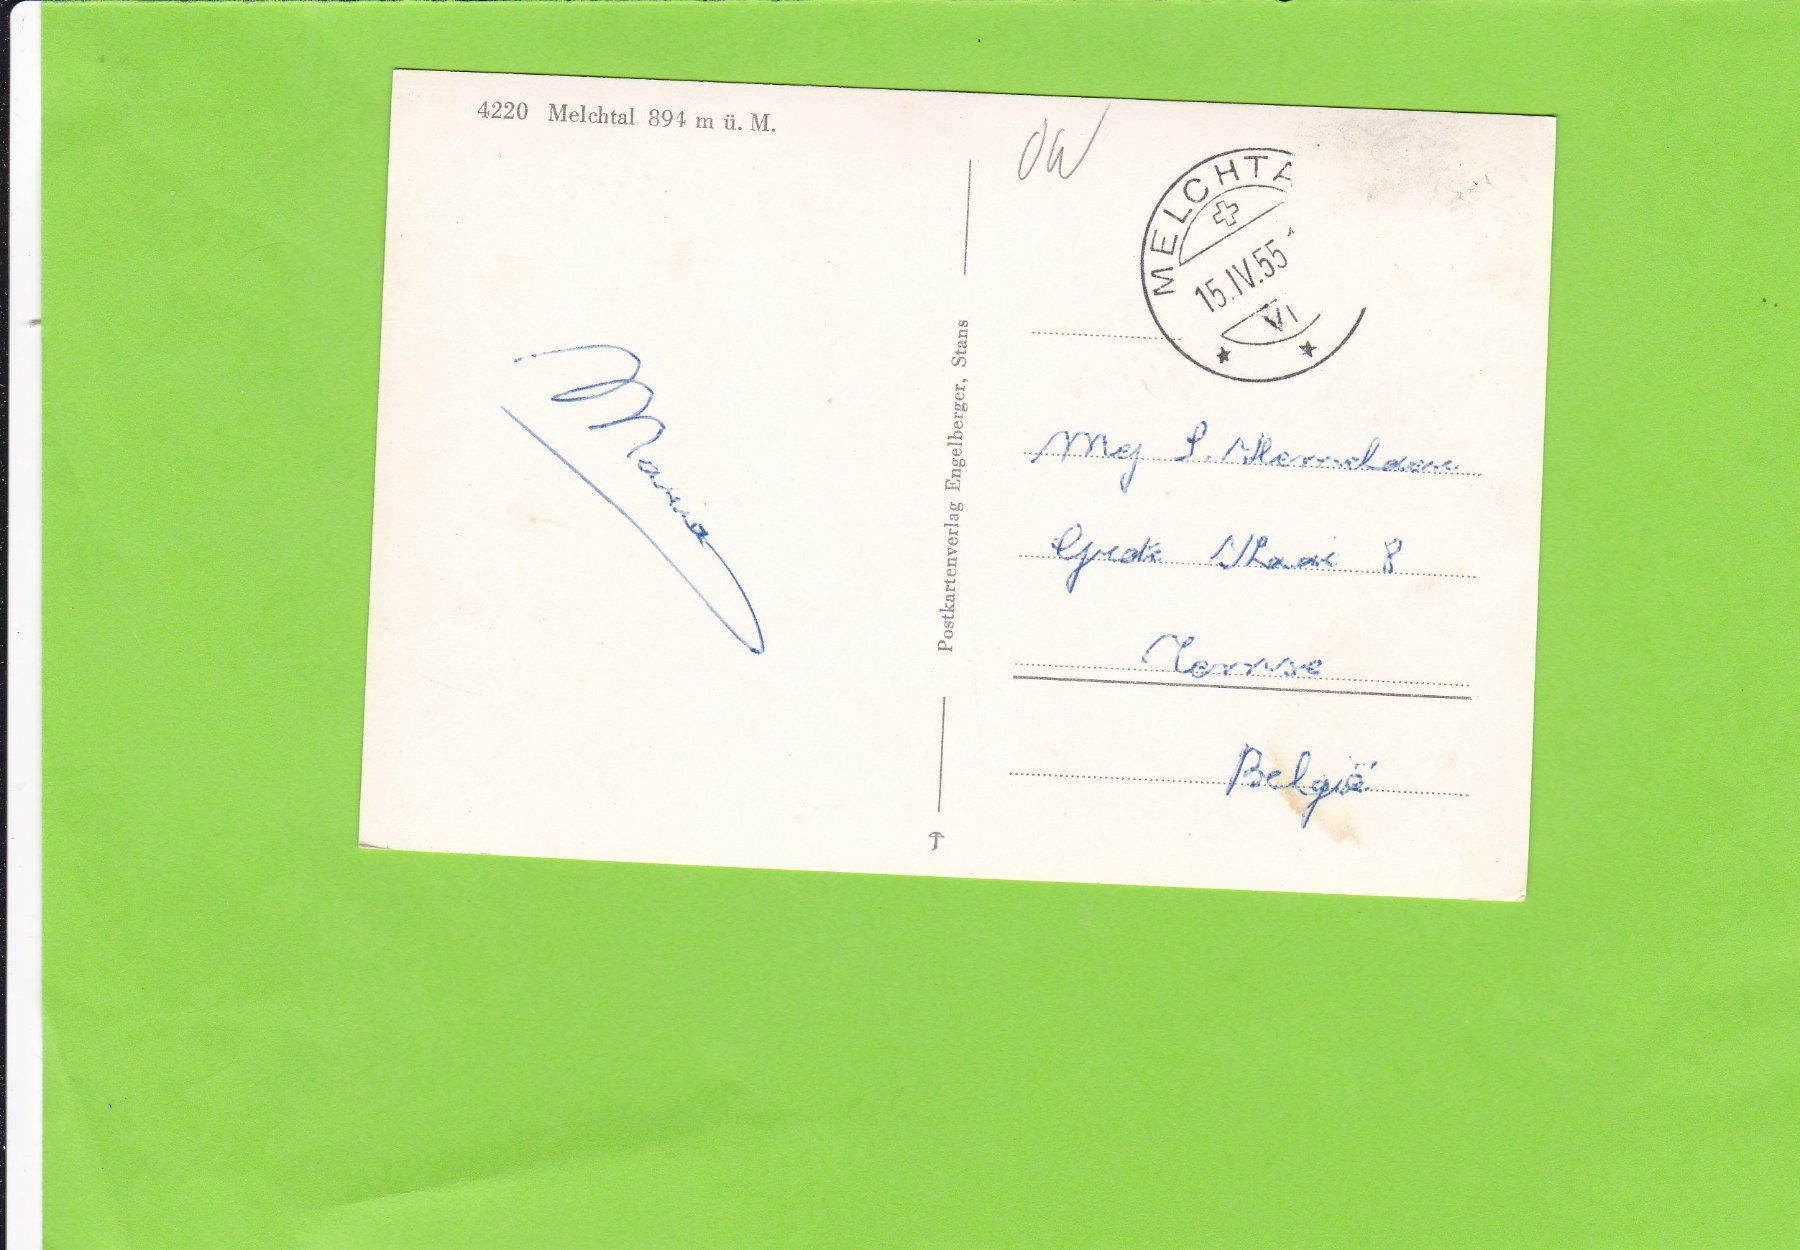 4220 Melchtal 894 m ü. M.
OW
MELCHTA
15.IV.55
VI
Maria
Postkartenverlag Engelberger, Stans
Mej S.
8
Temse
België